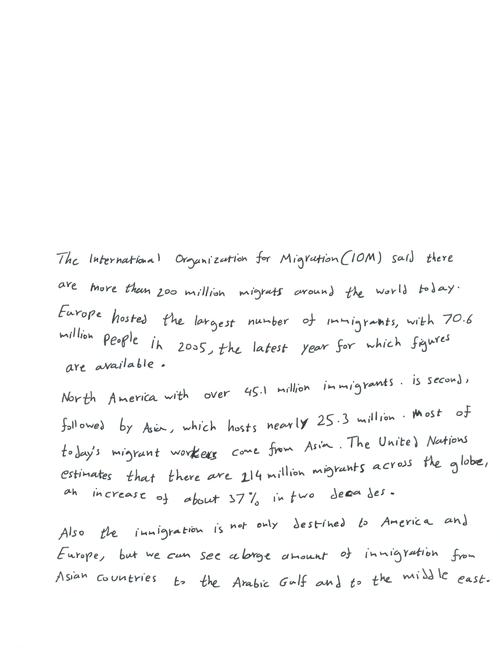 The International Organization for Migration (IOM) said there
are more than 200 million migrats around the world today.
Europe hosted the largest number of immigrants, with 70.6
million People in 2005, the latest year for which figures
are available.
North America with over 45.1 million immigrants. is second,
followed by Asia, which hosts nearly 25.3 million. Most of
today's migrant workers come from Asia. The United Nations
estimates that there are 214 million migrants across the globe,
an increase of about 37% in two decades.
Also the immigration is not only destined to America and
Europe, but we can see a large amount of immigration from
Asian countries to the Arabic Gulf and to the middle east.